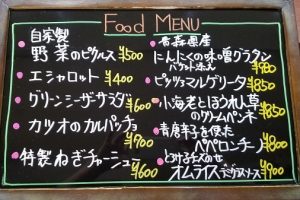 Food MENU
自家製
野菜のピクルス ¥500
エシャロット ¥400
グリーンシーザーサラダ ¥600
カツオのカルパッチョ ¥700
特製ねぎチャーシュー ¥600
青森県産
にんにくの味噌グラタン
バケット添え ¥980
ピッツァマルゲリータ ¥850
小海老とほうれん草
のクリームペンネ ¥850
青唐辛子を使た
ペペロンチーノ ¥800
とろけるチーズのせ
オムライス デミグラスソース ¥900